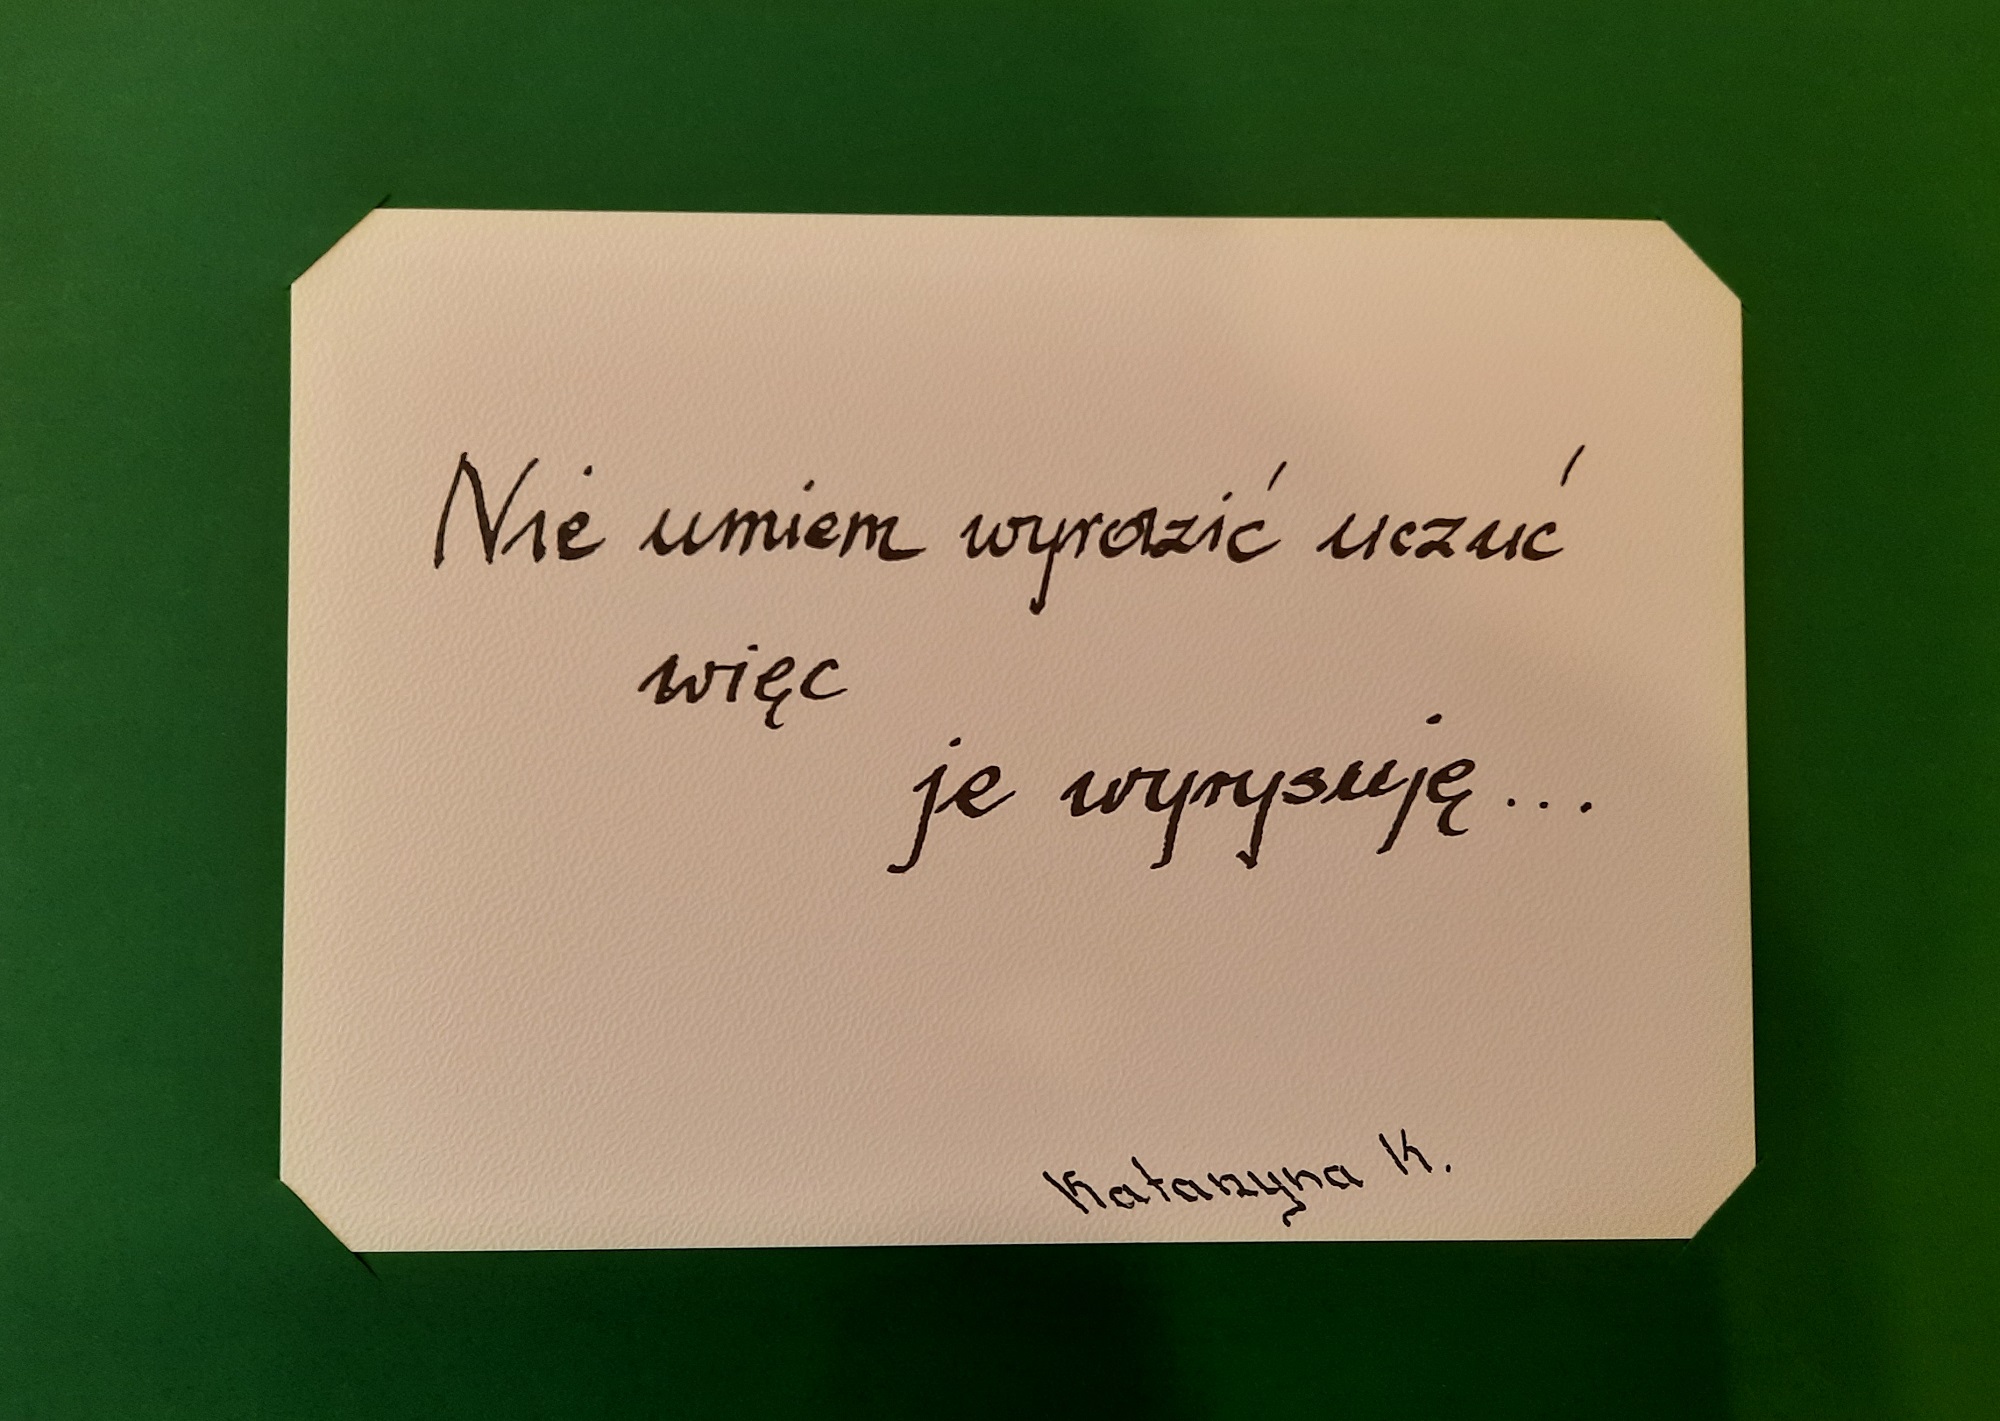 Nie umiem wyrazić uczuć
więc
je wyrysuję...
Katarzyna K.